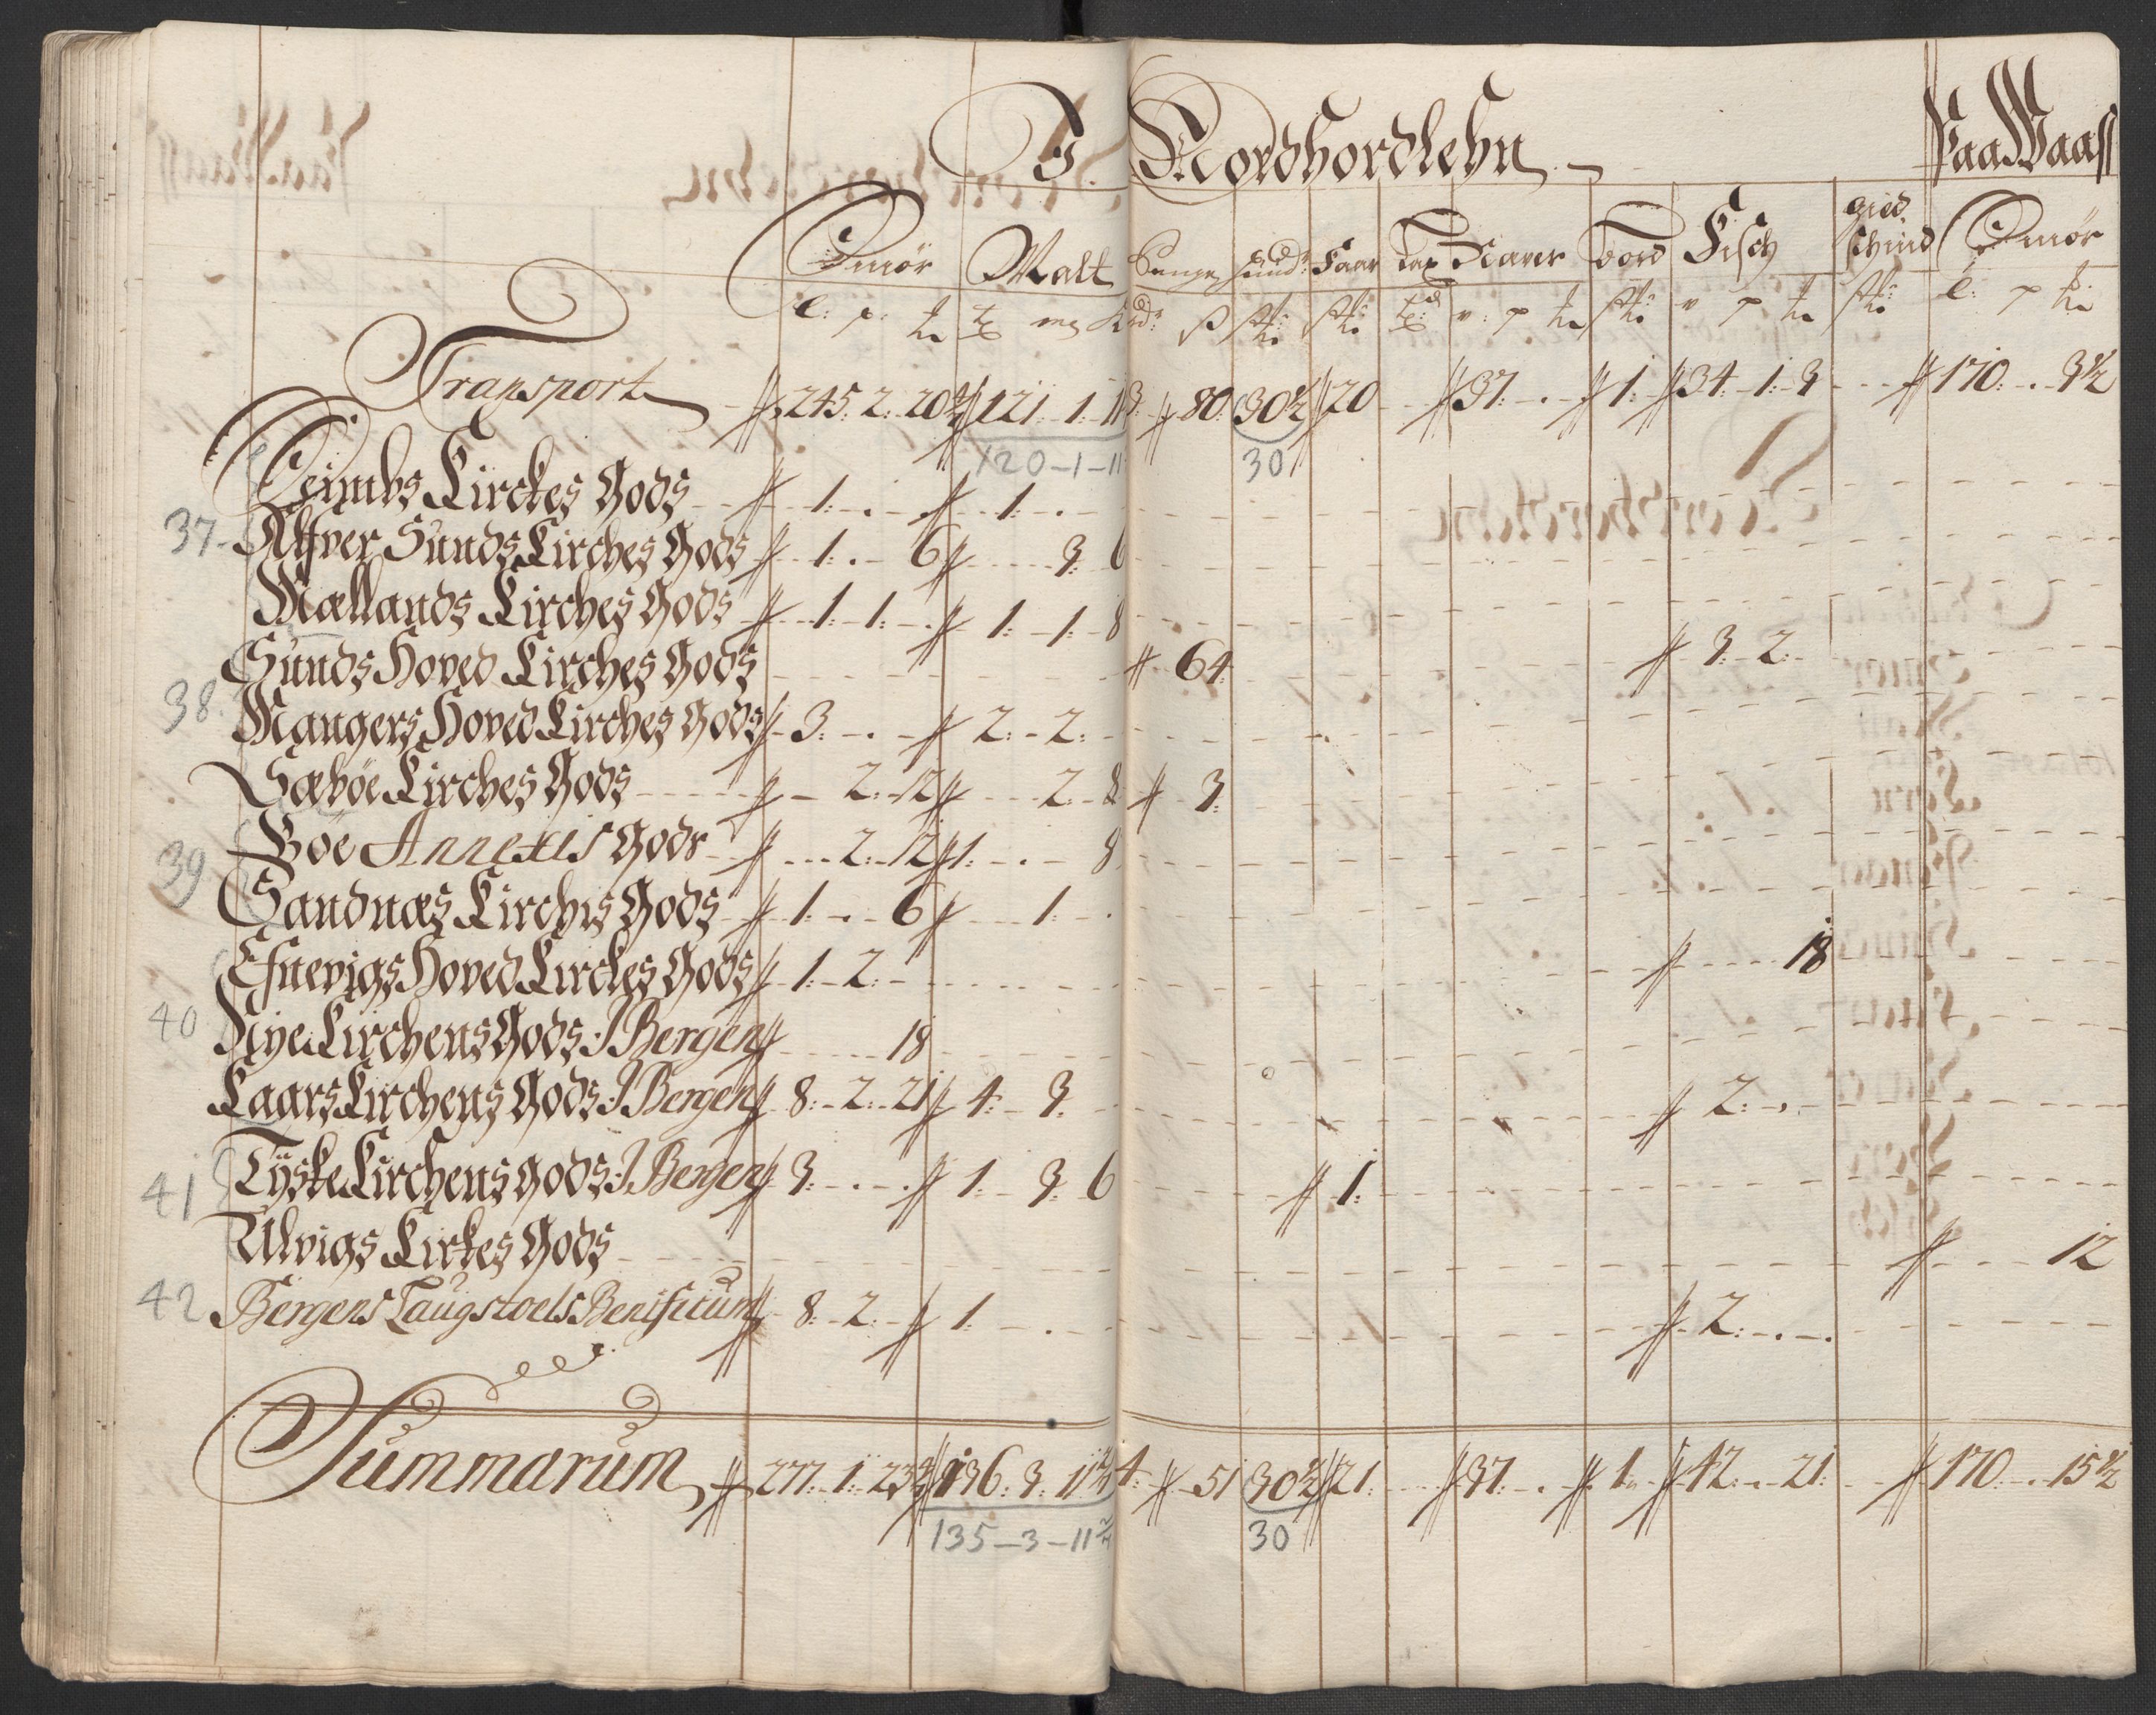 I Nordhordlehn Paa Waass
Smör Malt Penge hud Faar Tarer Fisch gied schind Smör
Transport 245: 2: 20 121: 1: 11 3: 80: 30½ 20 37: 1: 34: 1: 3 170: 3½
120-1-11 30
Seimbs Kirckes Gods 1: 1:
37 Alfver Sunds Kirches Gods 1: 6 3: 6
Mællands Kirches Gods 1: 1: 1: 1: 8
Sunds Hoved Kirches Gods 64 3: 2:
38 Mangers Hoved Kirches Gods 3: 2: 2:
Sæböe Kirches Gods 2: 12 2: 8 3:
39 Böe Annexis Gods 2: 12 1: 8
Sandnæs Kirches Gods 1: 6 1:
Efnevigs Hoved Kirckes Gods 1: 2: 18
40 Nye Kirchens Gods: I Bergen 18
Kaars Kirchens Gods: I Bergen 8: 2: 21 4: 3: 2:
41 Tÿske Kirchens Gods: I Bergen 3: 1: 3: 6 1:
Ulvigs Kirkes Gods 12
42 Bergens Laugstoels Benificium 8: 2: 1: 2:
Summarum 277: 1: 23 136: 3: 11 4: 51 30½ 21: 37: 1: 42: 21: 170: 15½
135-3-11 30